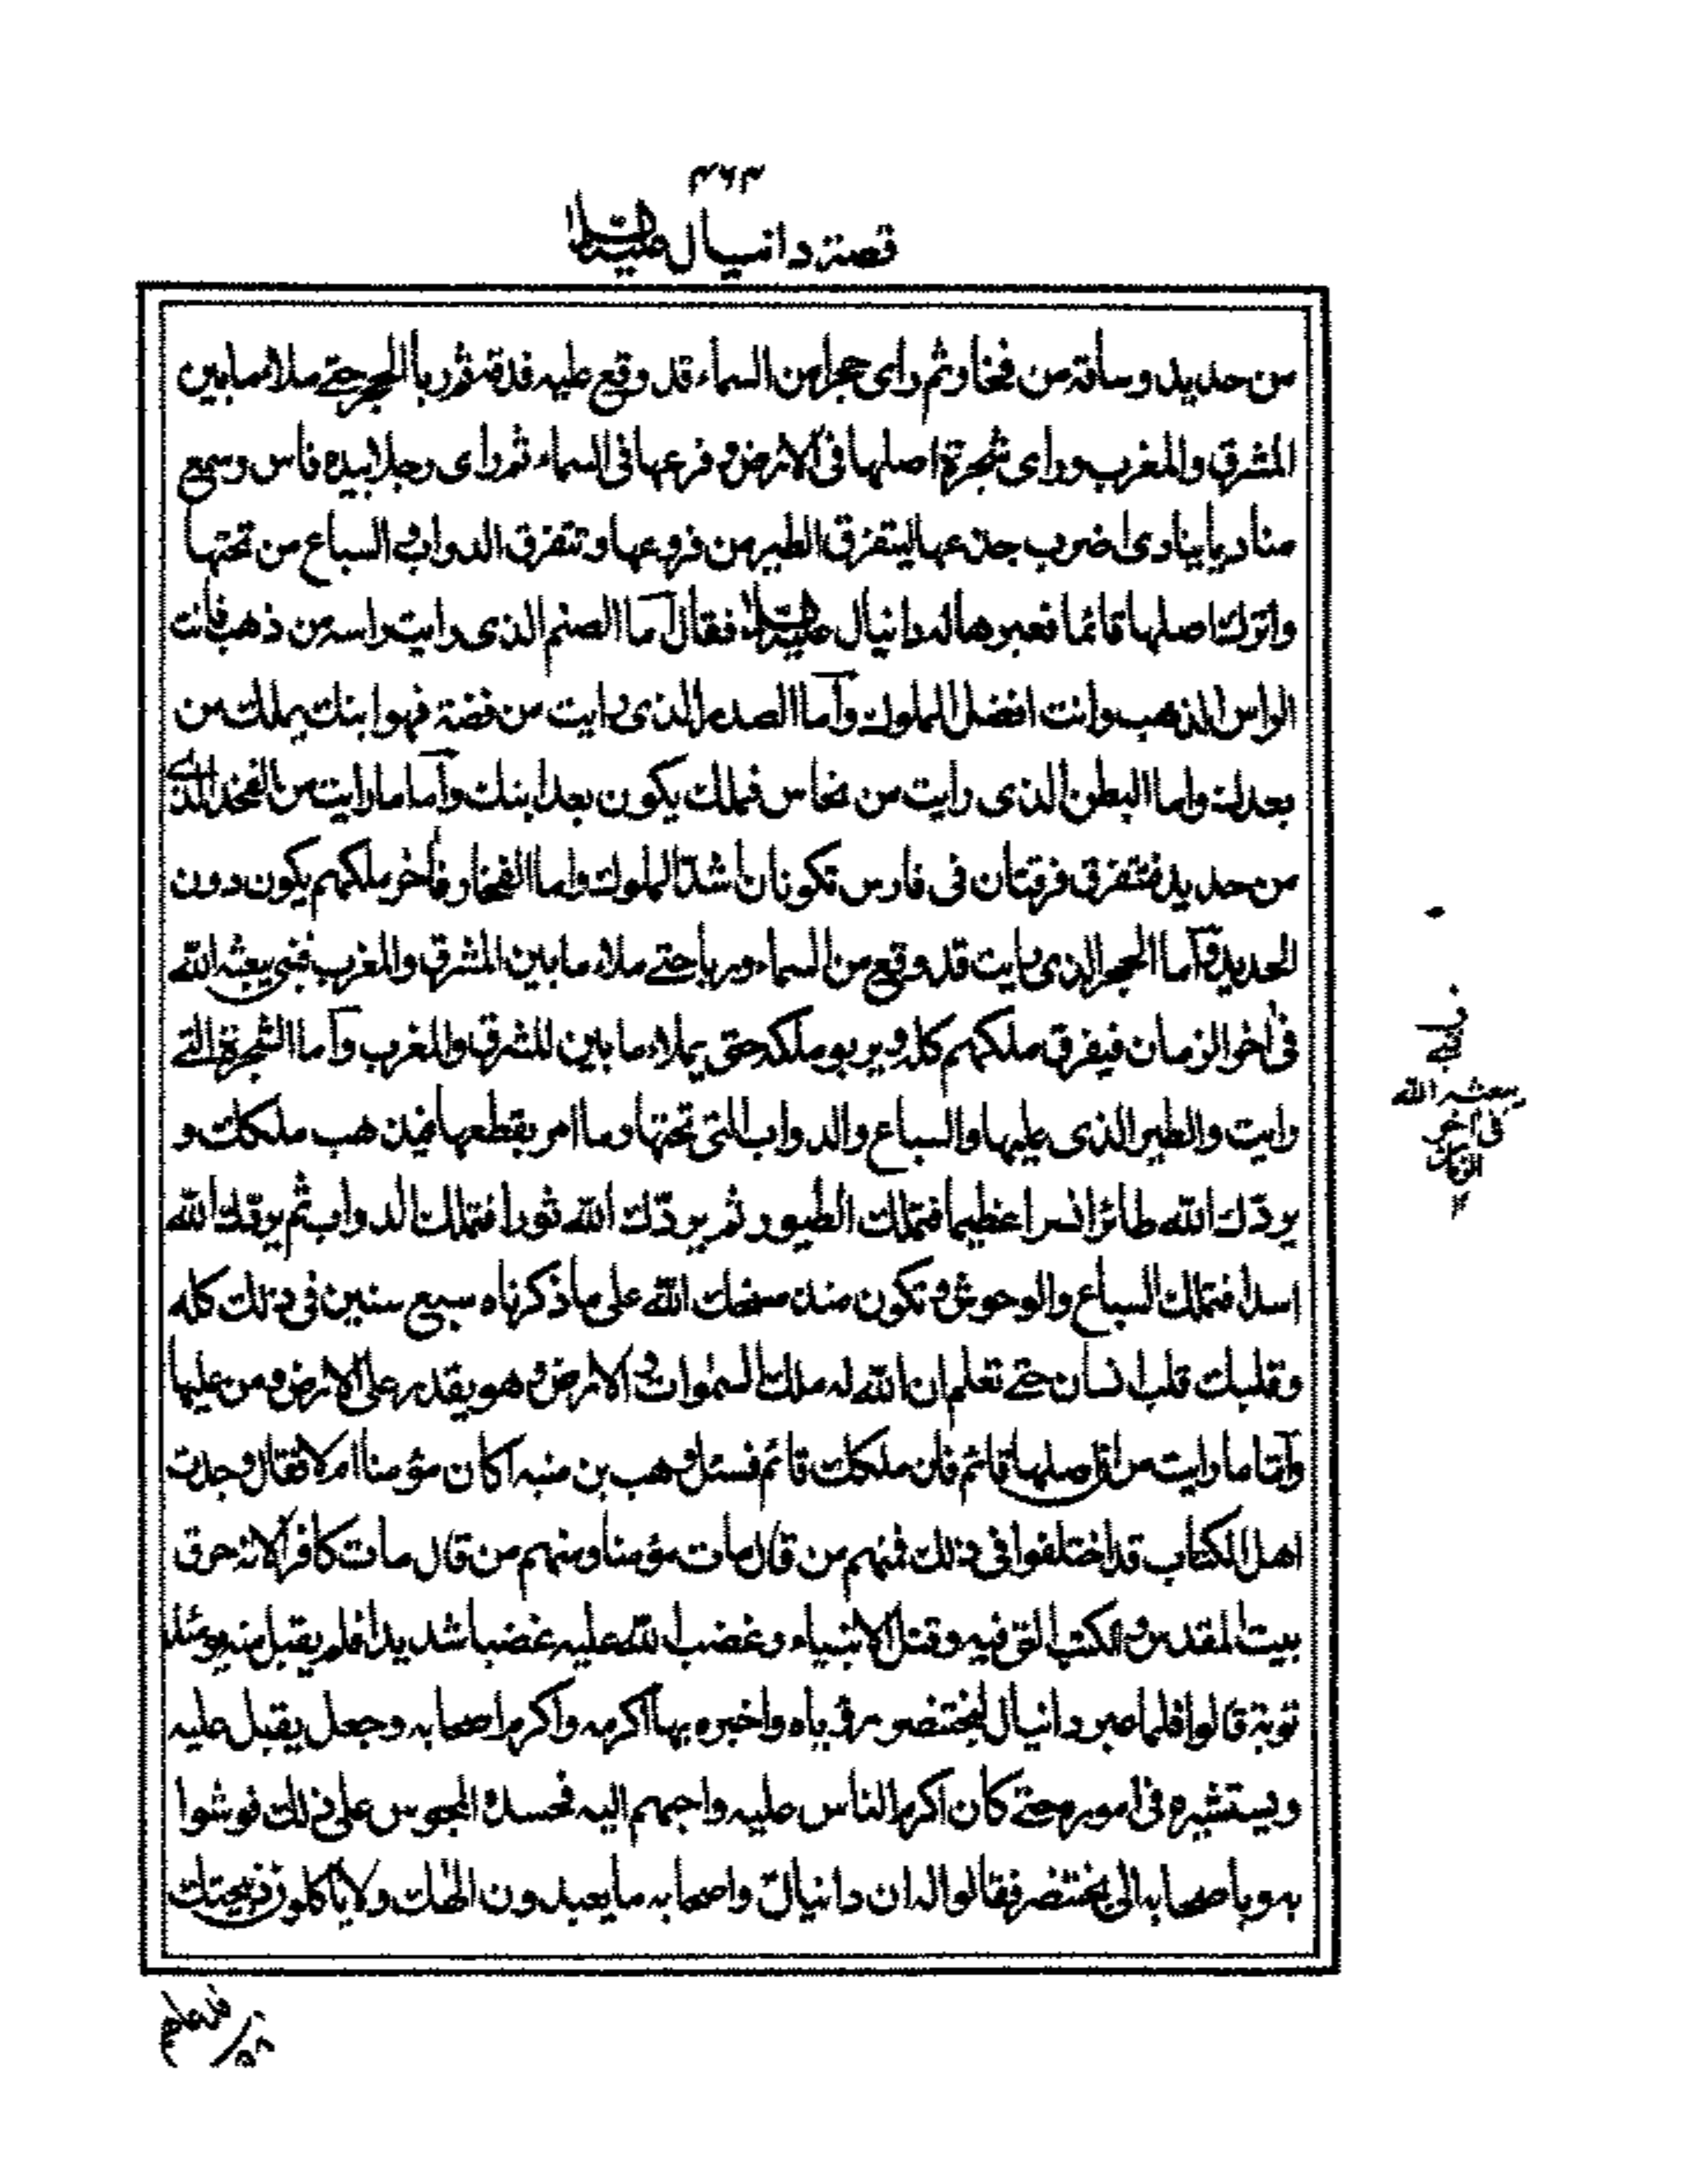 ٤٦٣
قصة دانيال عليه السلام
من حديد وساقه من فخار ثم راى حجرا من السماء قد وقع عليه فدقه ثم ربا الحجر حتى ملا ما بين
المشرق والمغرب وراى شجرة اصلها فى الارض و فرعها فى السماء ثم راى رجلا بيده فاس وسمع
مناديا ينادى اضرب جذعها ليتفرق الطير من فروعها و تتفرق الدواب و السباع من تحتها
واترك اصلها قائما فعبرها له دانيال عليه السلام فقال اما الصنم الذى رايت راسه من ذهب فانت
الراس الذهب وانت افضل الملوك واما الصدر الذى رايت من فضة فهو ابنك يملك من
بعدك واما البطن الذى رايت من نحاس فملك يكون بعد ابنك واما ما رايت من الفخذ الذى
من حديد فتفرق فرقتان فى فارس تكونان اشد الملوك واما الفخار فاخر ملكهم يكون دون
الحديد واما الحجر الذى رايت قد وقع من السماء و ربا حتى ملاء ما بين المشرق والمغرب فنبى يبعثه الله
فى اخر الزمان فيفرق ملكهم كله ويربو ملكه حتى يملاء ما بين المشرق والمغرب واما الشجرة التى
رايت والطير الذى عليها والسباع والدواب التى تحتها وما امر بقطعها فيذهب ملكك و
يردك الله طائرا نسرا عظيما فتملك الطيور ثم يردك الله ثورا فتملك الدواب ثم يردك الله
اسدا فتملك السباع والوحوش و تكون منذ مسخك الله على ما ذكرناه سبع سنين فى ذلك كله
وقلبك قلب انسان حتى تعلم ان الله له ملك السموات و الارض و هو يقدر على الارض و من عليها
واما ما رايت من ان اصلها قائم فان ملكك قائم فسئل وهب بن منبه اكان مؤمنا ام لا فقال وجدت
اهل الكتاب قد اختلفوا فى ذلك فمنهم من قال مات مؤمنا ومنهم من قال مات كافرا لانه حرق
بيت المقدس و الكتب التى فيه و قتل الانبياء و غضب الله عليه غضبا شديدا فلم يقبل منه يومئذ
توبة قالوا فلما عبر دانيال لبختنصر رؤياه واخبره بها اكرمه واكرم اصحابه وجعل يقبل عليه
ويستشيره فى اموره حتى كان اكرم الناس عليه واحبهم اليه فحسده المجوس على ذلك فوشوا
به وباصحابه الى بختنصر فقالوا له ان دانيال واصحابه ما يعبدون الهك ولا ياكلون ذبيحتك
فنبى
يبعثه الله
فى اخر
الزمان